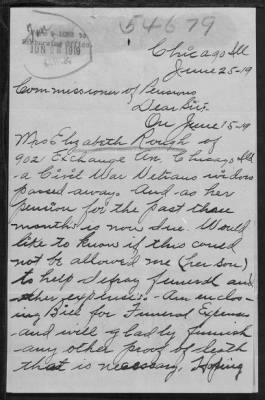 54679
JUN 28 1919
Chicago Ill
June 25-19
Commissioner of Pensions
Dear Sir.
On June 15-19
Mrs Elizabeth Rorish of
9021 Exchange Av. Chicago Ill
-a Civil War Vetrans widow
passed away. And as her
pension for the past three
months is now due. Would
like to know if this could
not be allowed me (her son)
to help defray funeral and
other expenses. Am enclos-
ing Bill for Funeral Expenses
and will gladly furnish
any other proof of death
that is necessary, Hoping